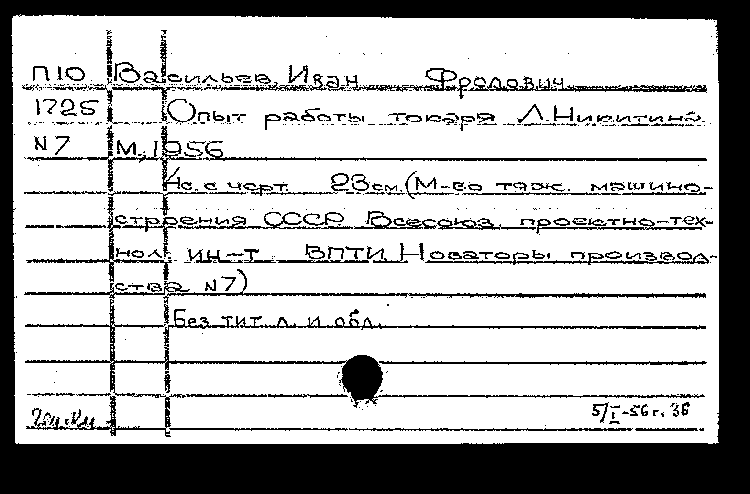 П10 Васильев, Иван Фролович
1725 Опыт работы токаря Л. Никитина
N7 М., 1956
4с. с черт. 23см. (М-во тяж. машино-
строения СССР Всесоюз. проектно-тех-
нол. ин-т ВПТИ. Новаторы производ-
ства N7)
Без тит. л. и обл.
5/I-56г. 36